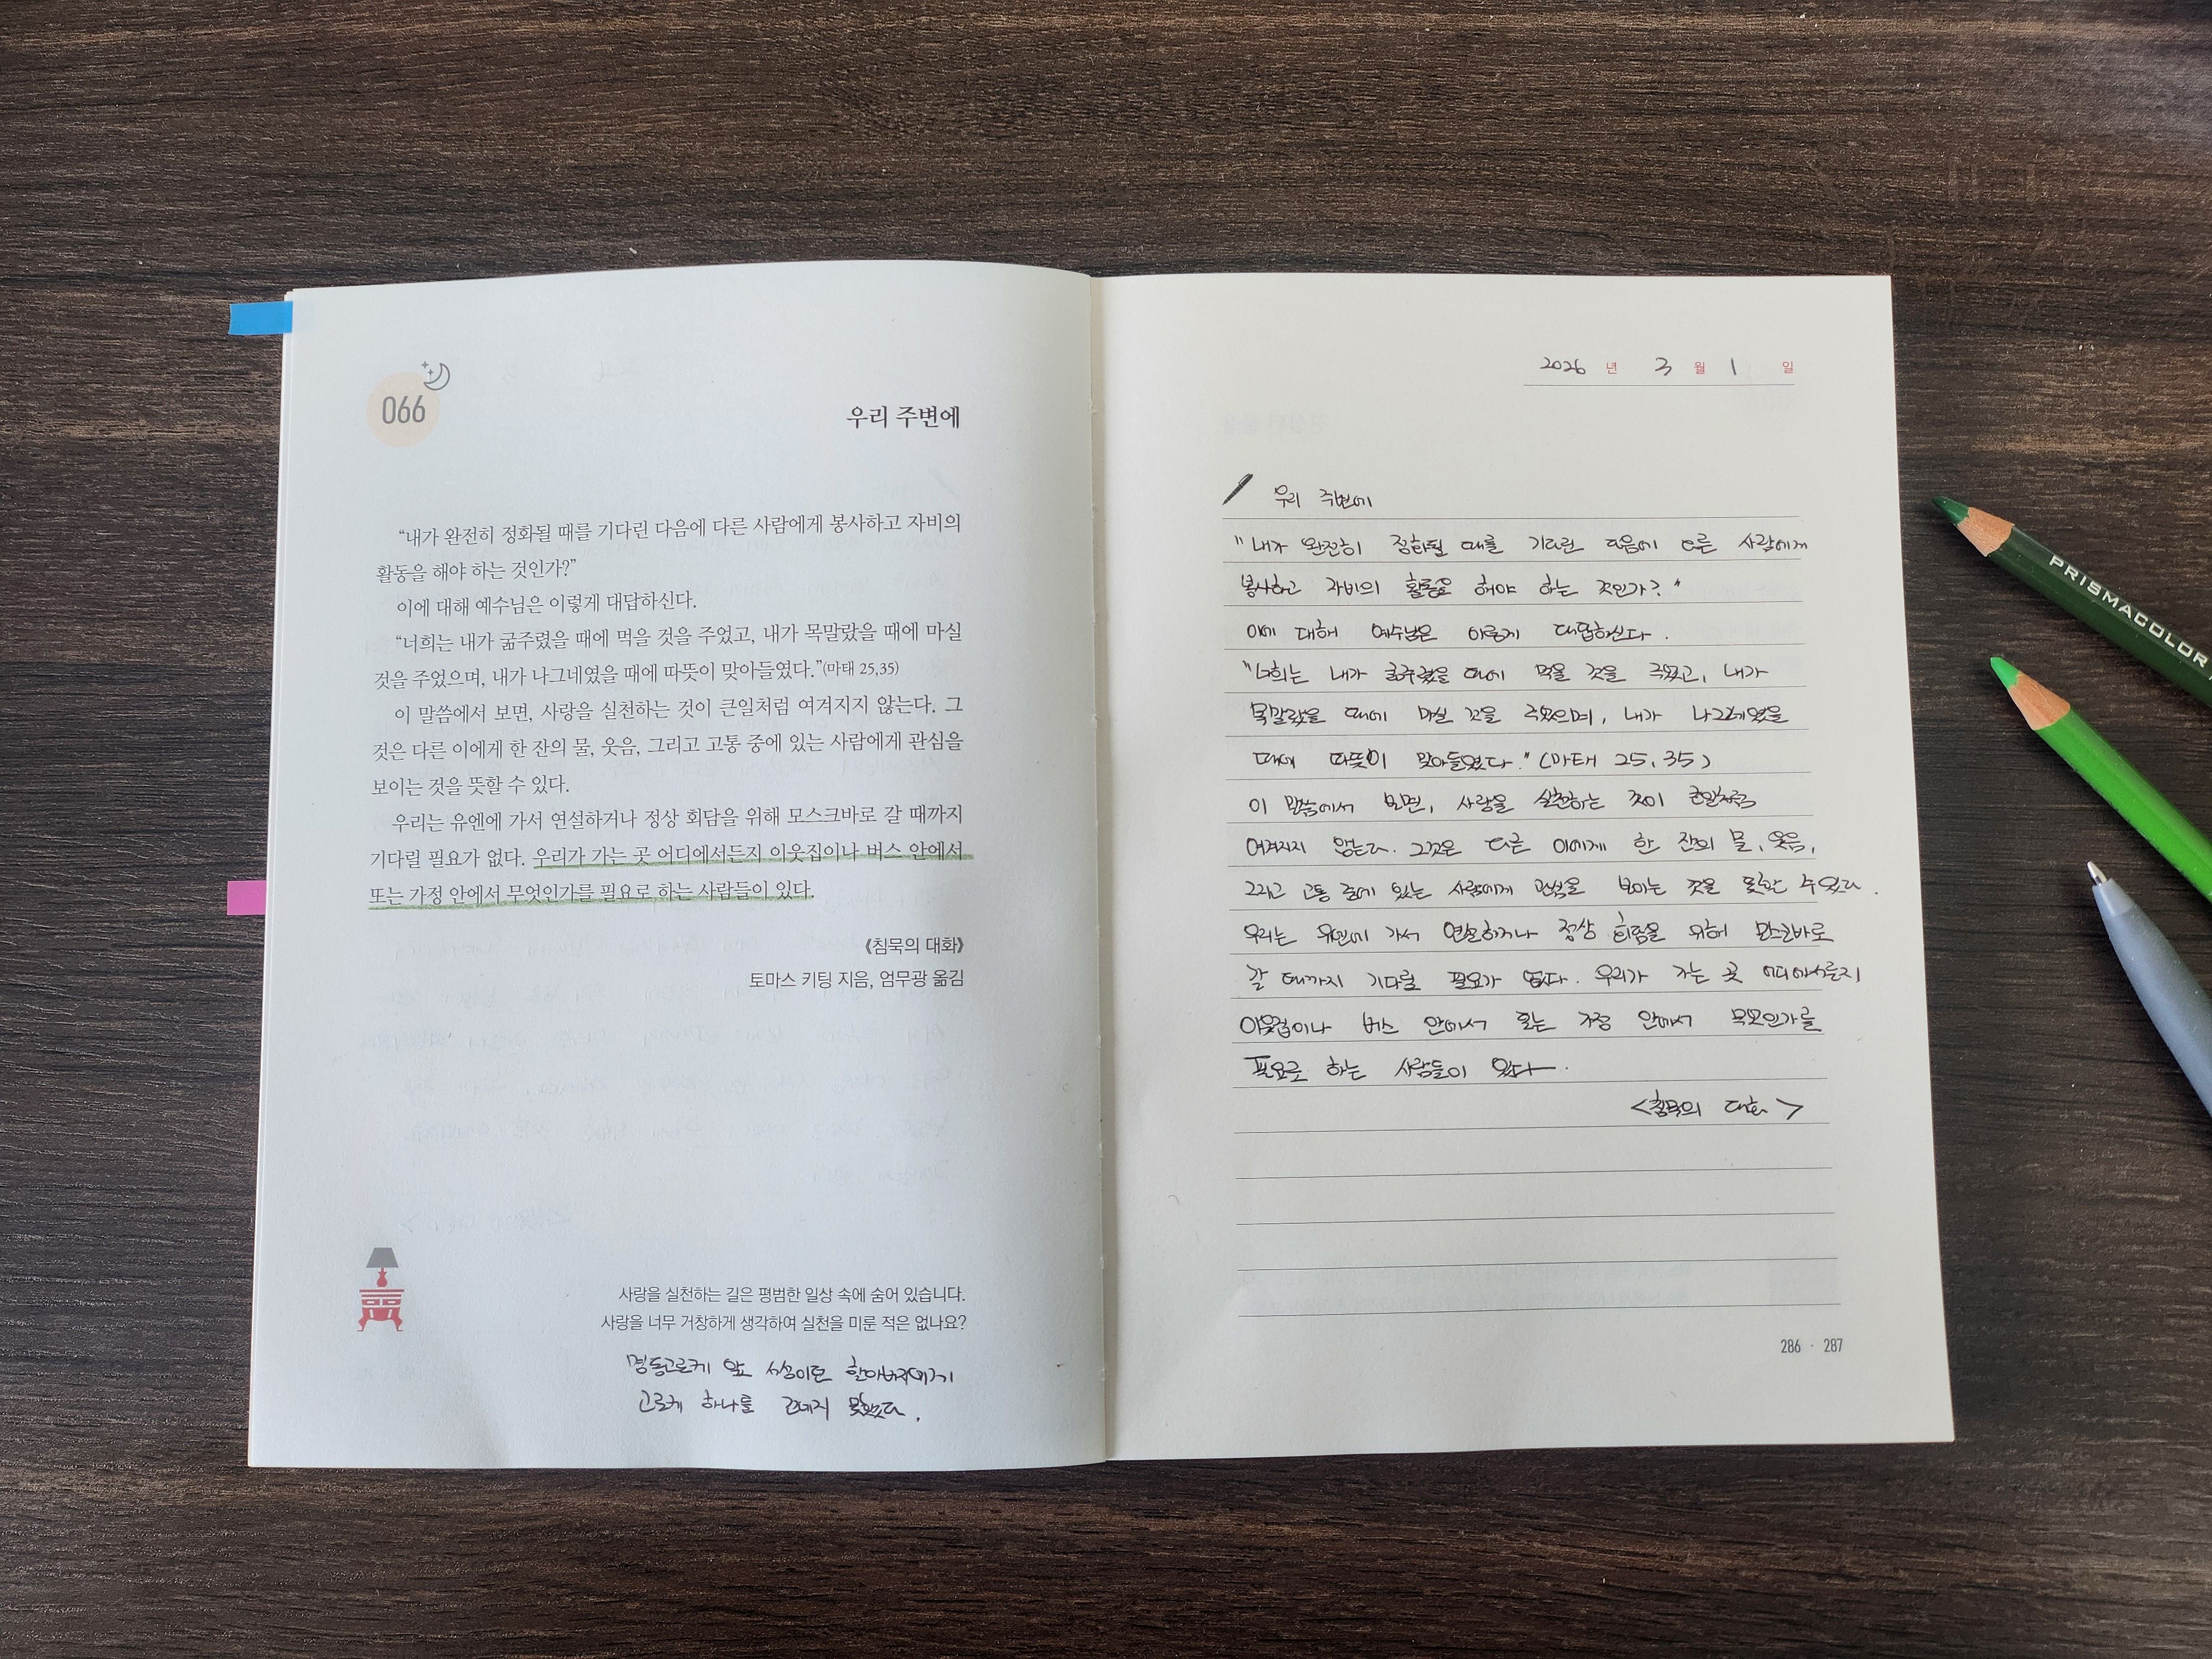 066
우리 주변에
“내가 완전히 정화될 때를 기다린 다음에 다른 사람에게 봉사하고 자비의
활동을 해야 하는 것인가?”
이에 대해 예수님은 이렇게 대답하신다.
“너희는 내가 굶주렸을 때에 먹을 것을 주었고, 내가 목말랐을 때에 마실
것을 주었으며, 내가 나그네였을 때에 따뜻이 맞아들였다.”(마태 25,35)
이 말씀에서 보면, 사랑을 실천하는 것이 큰일처럼 여겨지지 않는다. 그
것은 다른 이에게 한 잔의 물, 웃음, 그리고 고통 중에 있는 사람에게 관심을
보이는 것을 뜻할 수 있다.
우리는 유엔에 가서 연설하거나 정상 회담을 위해 모스크바로 갈 때까지
기다릴 필요가 없다. 우리가 가는 곳 어디에서든지 이웃집이나 버스 안에서
또는 가정 안에서 무엇인가를 필요로 하는 사람들이 있다.
《침묵의 대화》
토마스 키팅 지음, 엄무광 옮김
사랑을 실천하는 길은 평범한 일상 속에 숨어 있습니다.
사랑을 너무 거창하게 생각하여 실천을 미룬 적은 없나요?
명동고로케 앞 할아버지에게
고로케 하나를 건네지 못했다.
2026 년 3 월 1 일
우리 주변에
"내가 완전히 정화될 때를 기다린 다음에 다른 사람에게
봉사하고 자비의 활동을 해야 하는 것인가?"
이에 대해 예수님은 이렇게 대답하신다.
"너희는 내가 굶주렸을 때에 먹을 것을 주었고, 내가
목말랐을 때에 마실 것을 주었으며, 내가 나그네였을
때에 따뜻이 맞아들였다." (마태 25, 35)
이 말씀에서 보면, 사랑을 실천하는 것이 큰일처럼
여겨지지 않는다. 그것은 다른 이에게 한 잔의 물, 웃음,
그리고 고통 중에 있는 사람에게 관심을 보이는 것을 뜻할 수 있다.
우리는 유엔에 가서 연설하거나 정상 회담을 위해 모스크바로
갈 때까지 기다릴 필요가 없다. 우리가 가는 곳 어디에서든지
이웃집이나 버스 안에서 또는 가정 안에서 무엇인가를
필요로 하는 사람들이 있다.
<침묵의 대화>
286 · 287
PRISMACOLOR